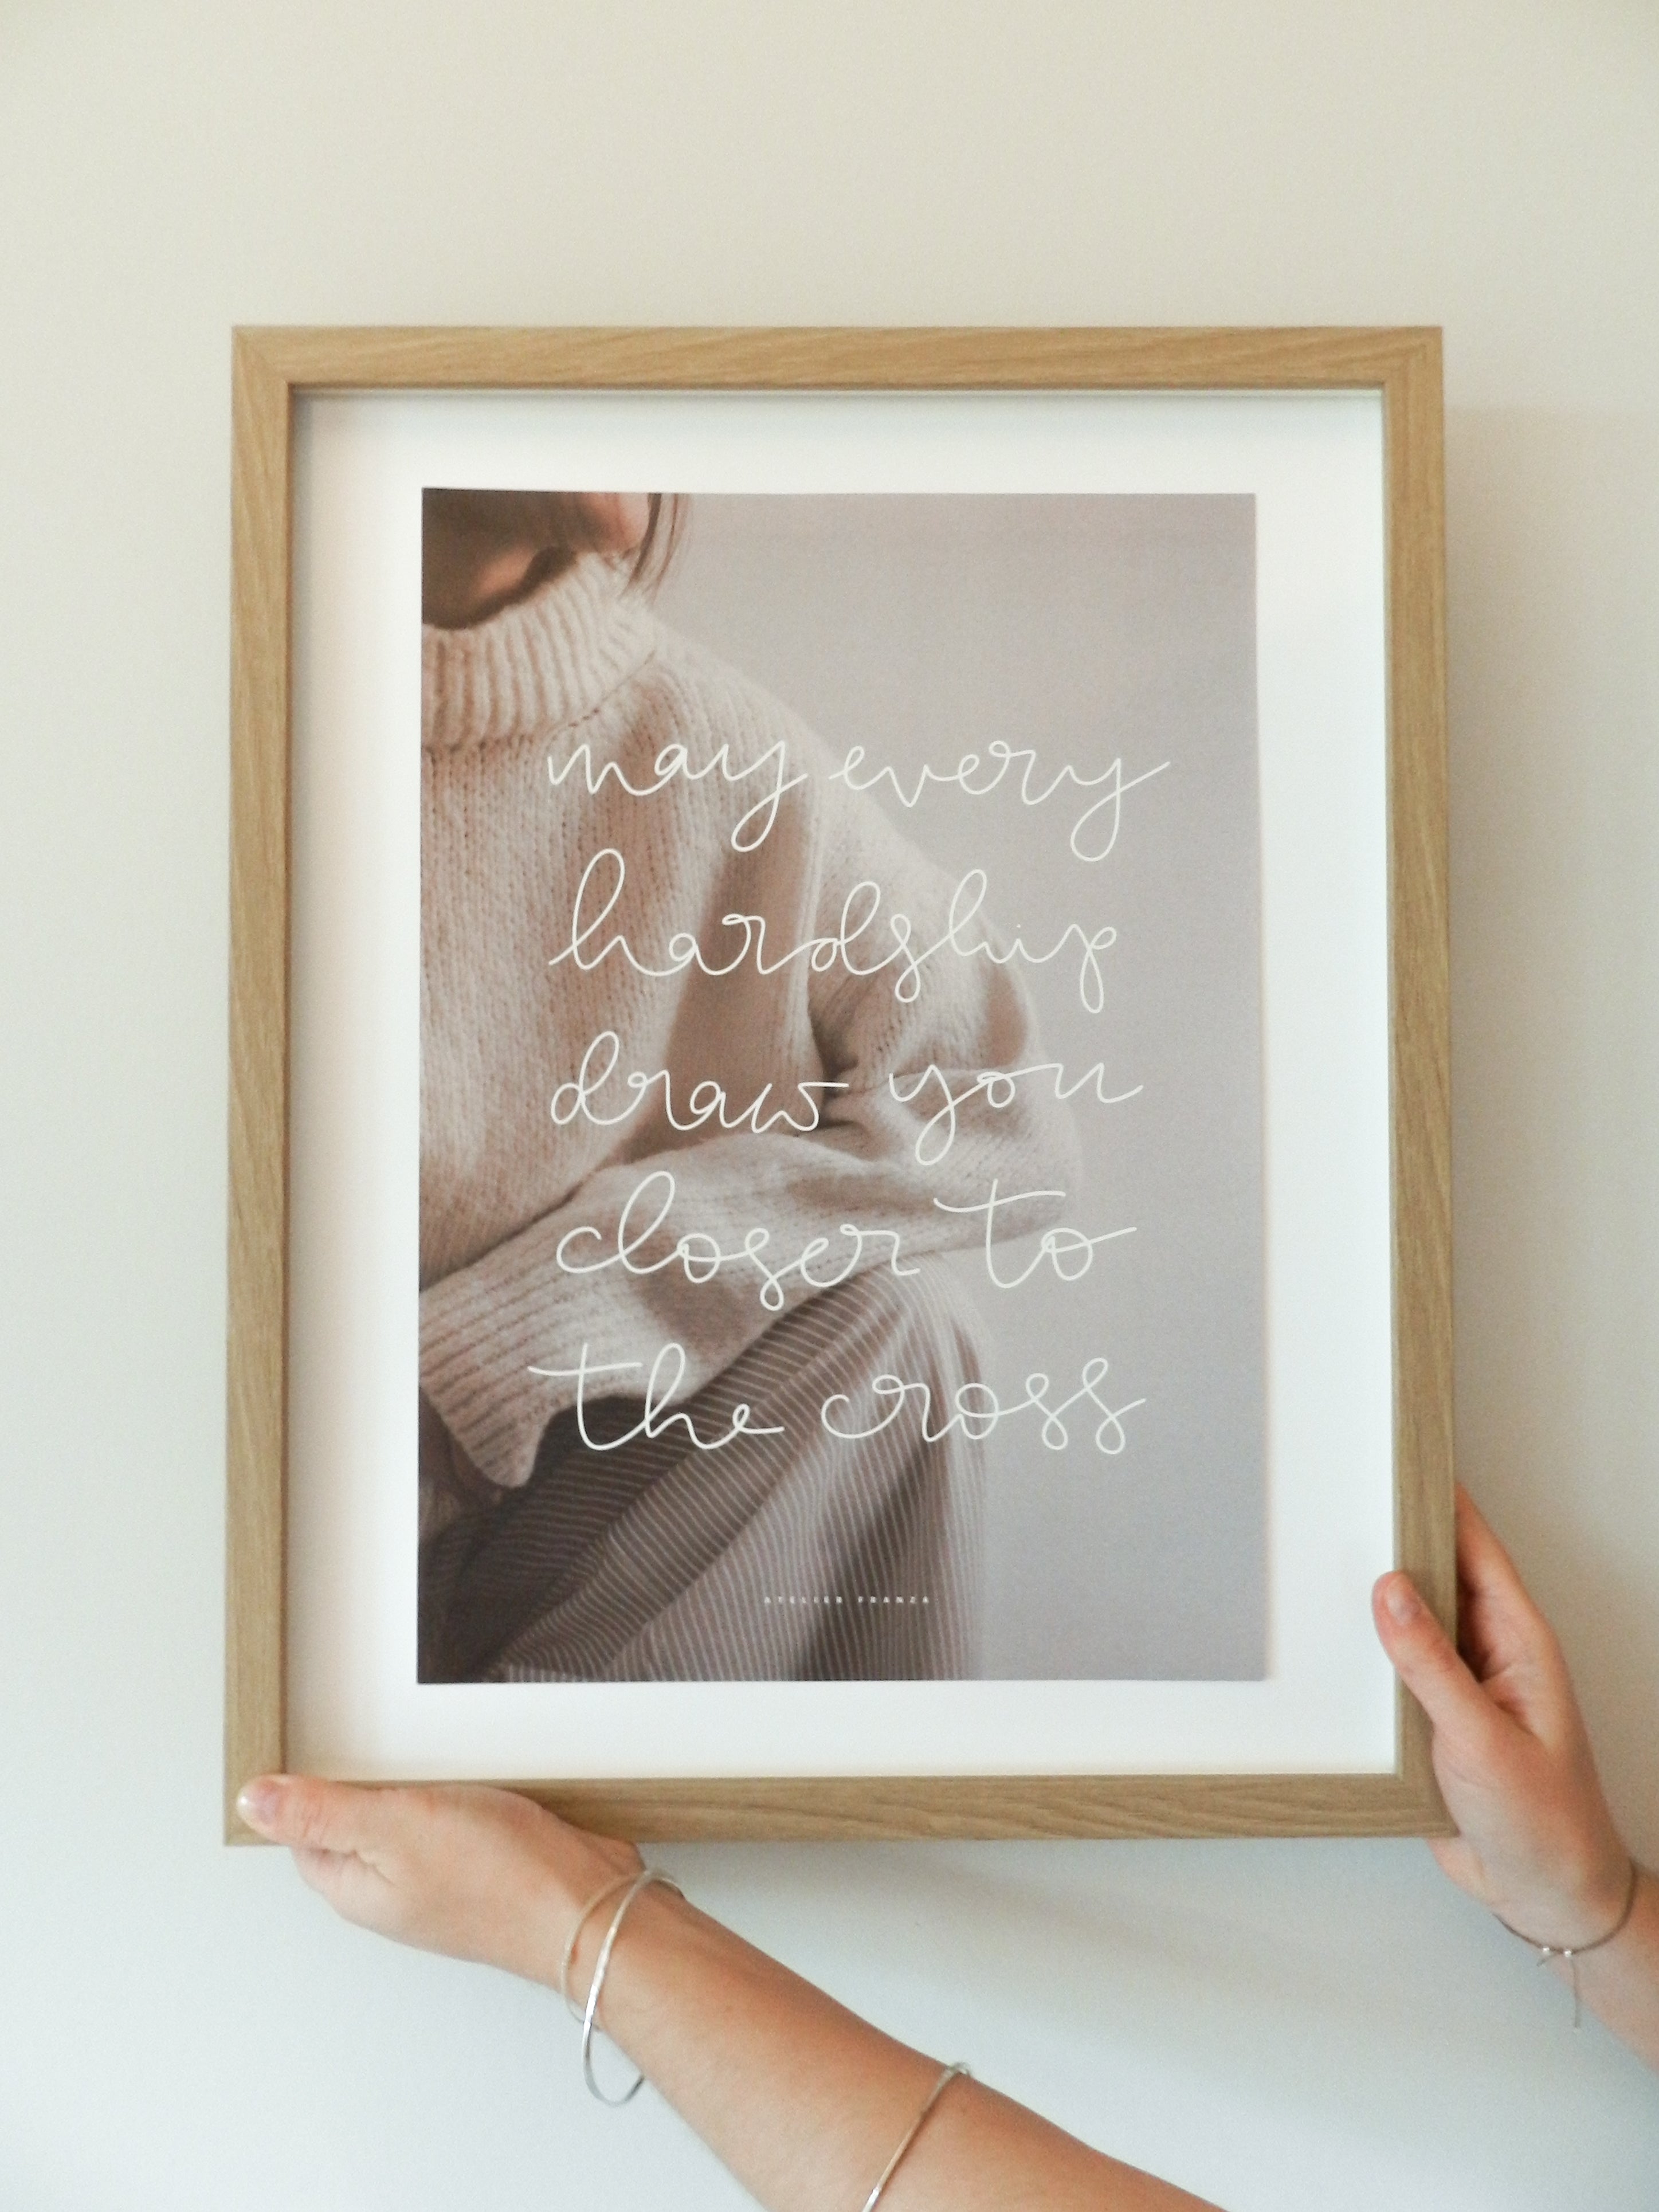 may every
hardship
draw you
closer to
the cross
ATELIER FRANZA